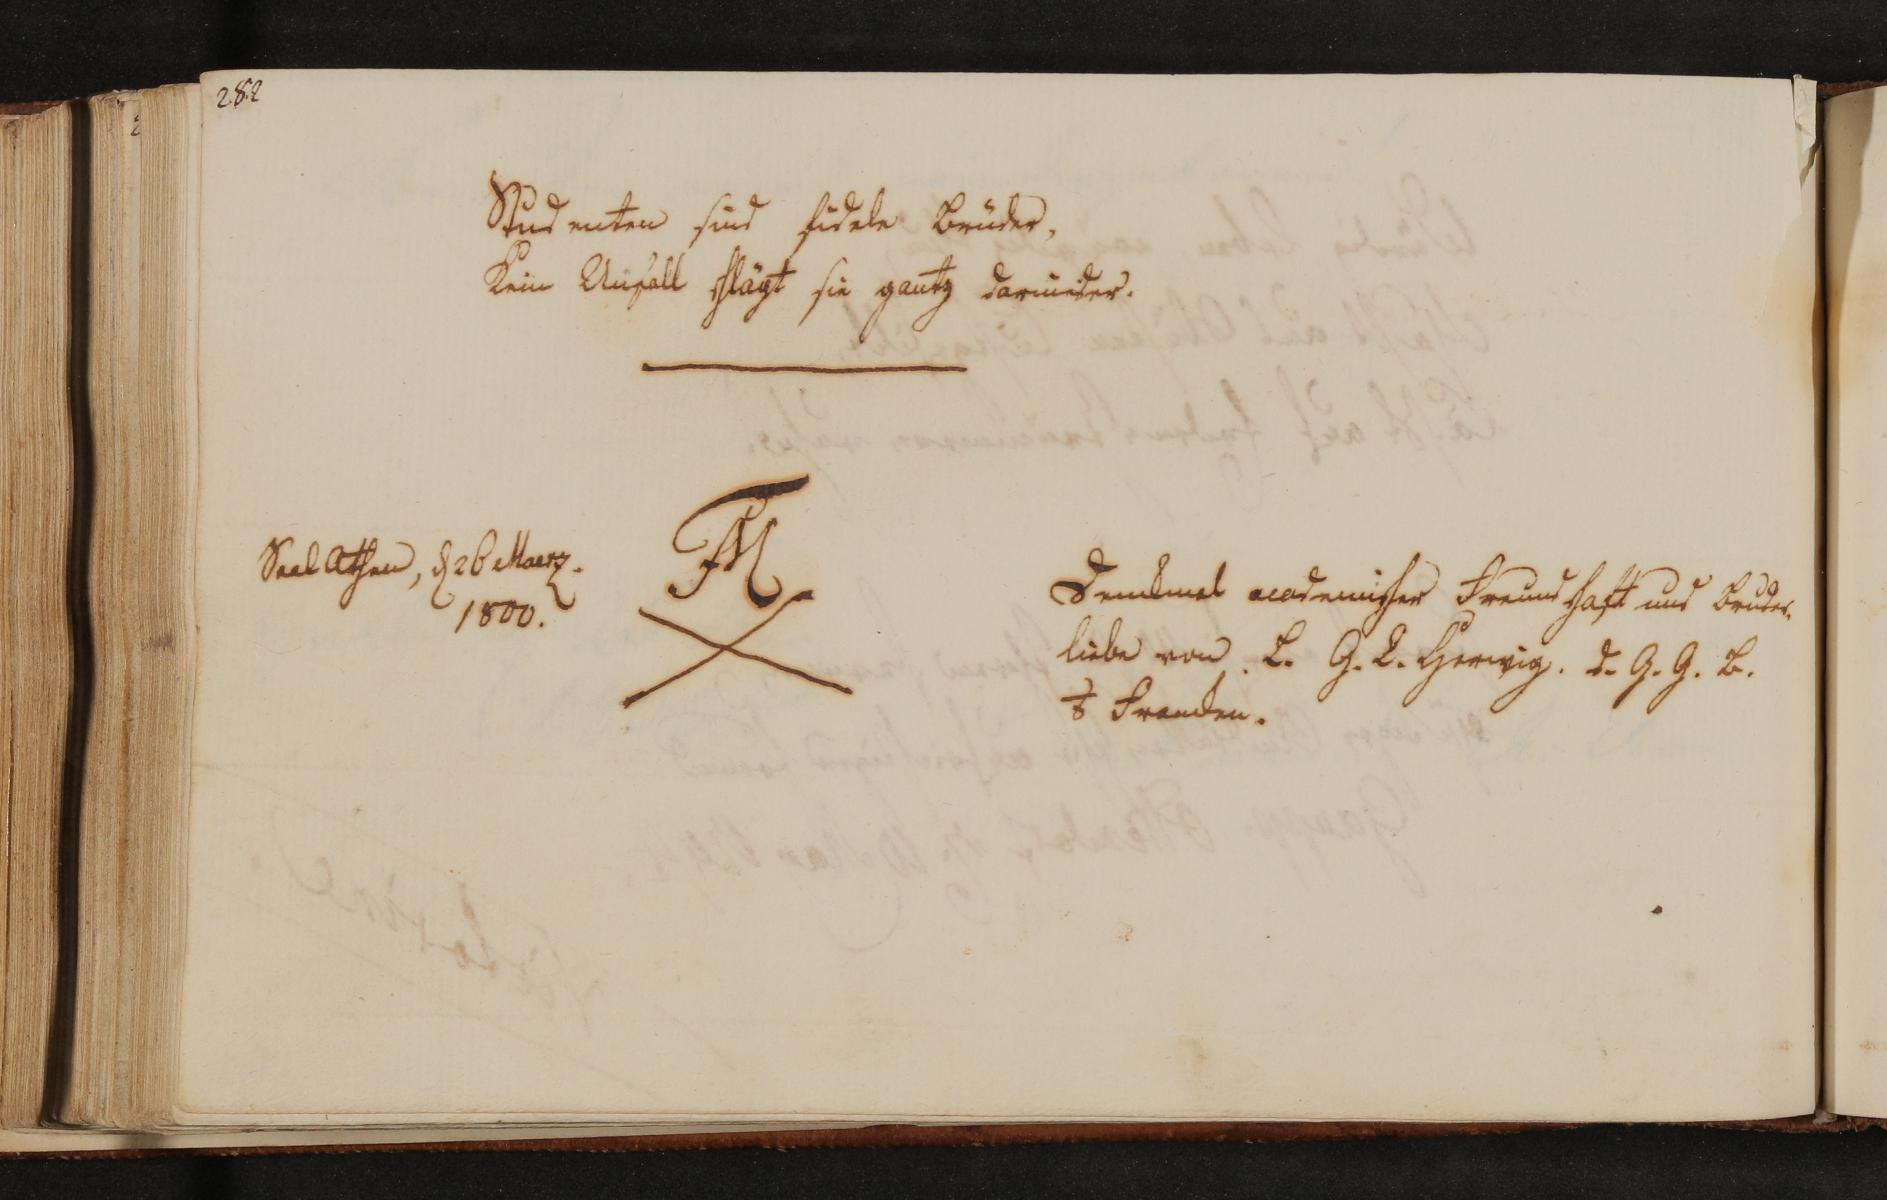 282
Studenten sind fidele Brüder,
Kein Unfall schlägt sie gantz darnieder.
Saal Athen, d 26 Maerz.
1800.
Denkmal academischer Freundschaft und Bruder-
liebe von L. G. L. Herwig. d. G. G. B.
a Franken.